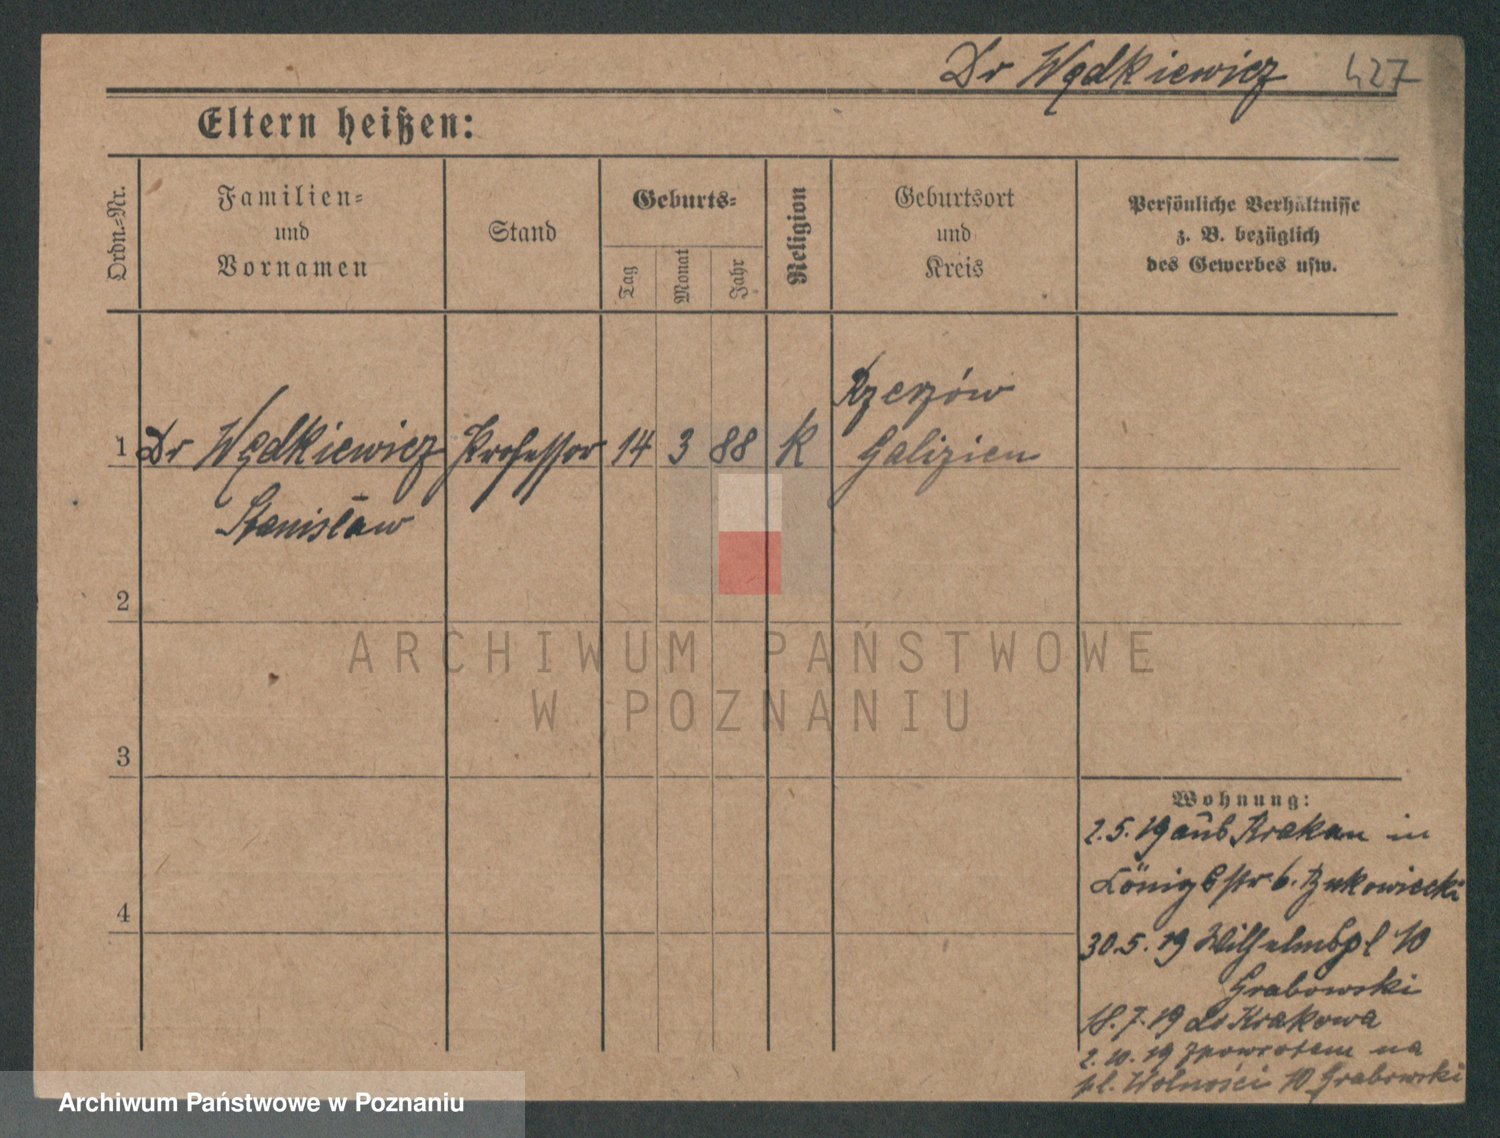 Dr Wądkiewicz 427
Eltern heißen:
Ordn.=Nr.
Familien=
und
Vornamen
Stand
Geburts=
Tag
Monat
Jahr
Religion
Geburtsort
und
Kreis
Persönliche Verhältnisse
z. B. bezüglich
des Gewerbes usw.
Rzeszów
1 Dr Wądkiewicz Professor 14 3 88 K Galizien
Stanisław
2
ARCHIWUM PAŃSTWOWE
W POZNANIU
3
Wohnung:
2.5.19 aus Krakau in
Königsstr. 6. Żukowiecki
4
30.5.19 Wilhelmspl 10
Grabowski
18.7.19 do Krakowa
2.10.19 zpowrotem na
pl. Wolności 10 Grabowski
Archiwum Państwowe w Poznaniu